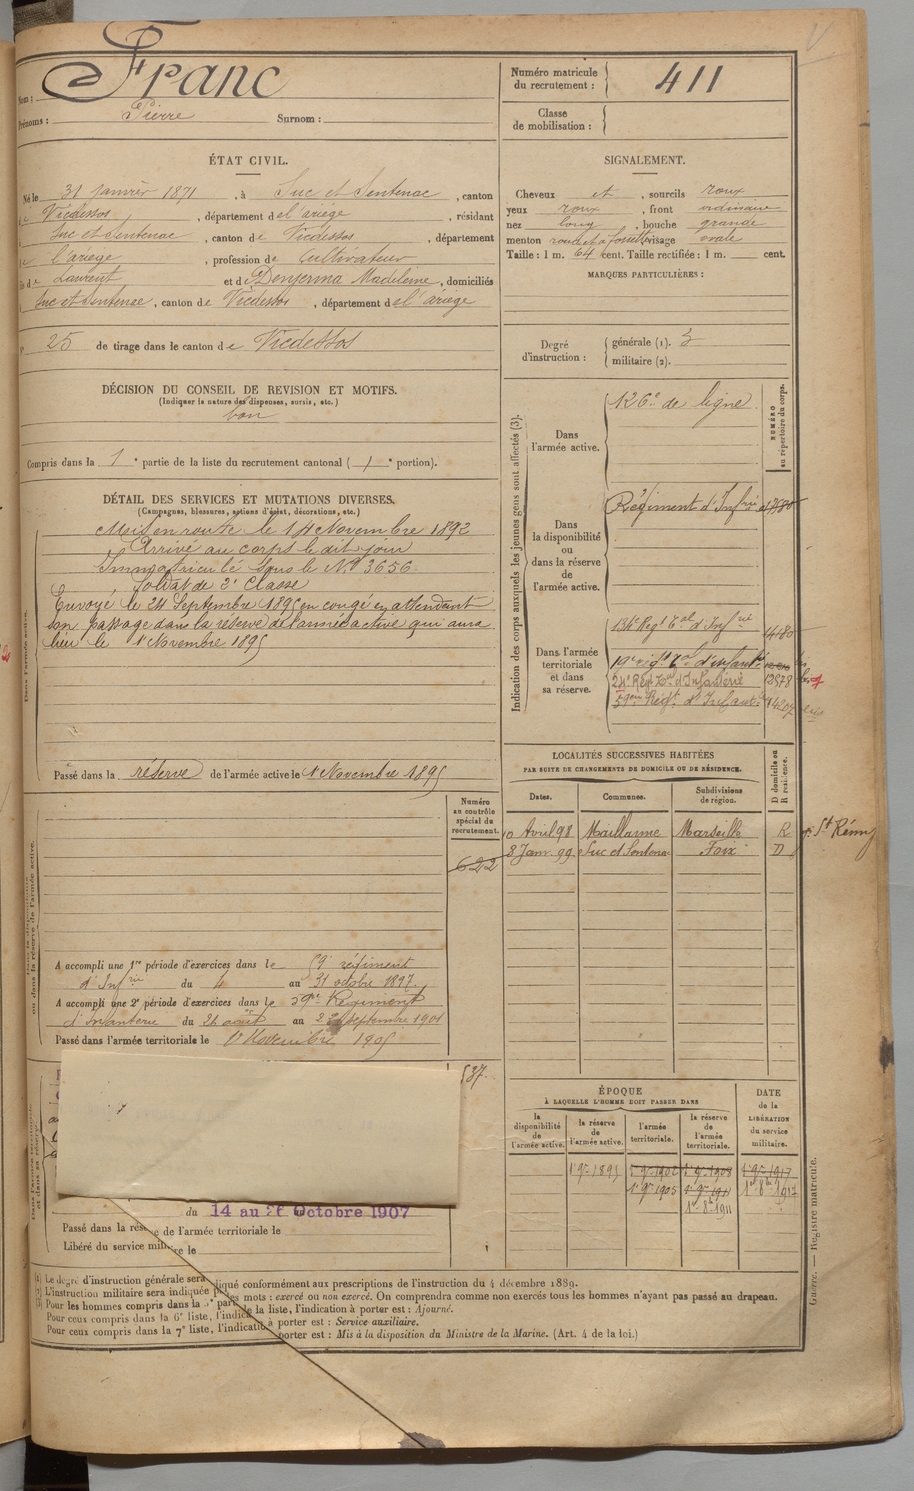 Nom : Franc
Prénoms : Pierre Surnom :
Numéro matricule du recrutement : 411
Classe de mobilisation :
ÉTAT CIVIL.
Né le 31 janvier 1871, à Suc et Sentenac, canton
de Vicdessos, département de l'ariège, résidant
Suc et Sentenac, canton de Vicdessos, département
de l'ariège, profession de cultivateur
fils de Laurent et de Madeleine, domiciliés
Suc et Sentenac, canton de Vicdessos, département de l'ariège
25 de tirage dans le canton de Vicdessos
SIGNALEMENT.
Cheveux et, sourcils roux
yeux roux, front ordinaire
nez long, bouche grande
menton rond et à fossette visage ovale
Taille : 1 m. 64 cent. Taille rectifiée : 1 m. cent.
MARQUES PARTICULIÈRES :
Degré d'instruction : générale (1). 3
militaire (2).
DÉCISION DU CONSEIL DE REVISION ET MOTIFS.
(Indiquer la nature des dispenses, sursis, etc.)
bon
Compris dans la 1e partie de la liste du recrutement cantonal (1e portion).
DÉTAIL DES SERVICES ET MUTATIONS DIVERSES.
(Campagnes, blessures, actions d'éclat, décorations, etc.)
Dans l'armée active.
Mis en route le 14 Novembre 1892
Arrivé au corps le dit jour
Immatriculé sous le No 3656
Soldat de 2e Classe
Envoyé le 24 Septembre 1895 en congé en attendant
son passage dans la réserve de l'armée active qui aura
lieu le 1 Novembre 1895
Passé dans la réserve de l'armée active le 1 Novembre 1895
Indication des corps auxquels les jeunes gens sont affectés (3).
NUMÉRO au répertoire du corps.
Dans l'armée active.
126e de ligne
Dans la disponibilité ou dans la réserve de l'armée active.
Régiment d'Infrie
Dans l'armée territoriale et dans sa réserve.
134e Regt Tal d'Infrie
19e régt Tal d'infant
24e Régt Tal d'Infanterie 13578
Regt d'Infant
LOCALITÉS SUCCESSIVES HABITÉES
PAR SUITE DE CHANGEMENTS DE DOMICILE OU DE RÉSIDENCE.
Dates. Communes. Subdivisions de région. D domicile ou R résidence.
10 Avril 98 Maillanne Marseille R St Rémy
8 Janv. 99 Suc et Sentenac Foix D
Numéro au contrôle spécial du recrutement.
622
ou dans la réserve de l'armée active.
A accompli une 1re période d'exercices dans le 59e régiment
d'Infrie du 4 au 31 octobre 1897.
A accompli une 2e période d'exercices dans le 59e Régiment
d'Infanterie du 26 août au 22 septembre 1901
Passé dans l'armée territoriale le 1er Novembre 1905
537.
du 14 au 26 Octobre 1907
Passé dans la rése de l'armée territoriale le
Libéré du service militaire le
ÉPOQUE
À LAQUELLE L'HOMME DOIT PASSER DANS
la disponibilité de l'armée active. la réserve de l'armée active. l'armée territoriale. la réserve de l'armée territoriale.
DATE de la LIBÉRATION du service militaire.
1 9re 1895 1 9re 1902 1 9re 1908 1 9re 1917
1 9re 1905 1 9re 1911 1er 8bre 1917
1er 8bre 1911
(1) Le degré d'instruction générale sera iqué conformément aux prescriptions de l'instruction du 4 décembre 1889.
L'instruction militaire sera indiquée p es mots : exercé ou non exercé. On comprendra comme non exercés tous les hommes n'ayant pas passé au drapeau.
Pour les hommes compris dans la 5e part de la liste, l'indication à porter est : Ajourné.
Pour ceux compris dans la 6e liste, l'indica à porter est : Service auxiliaire.
Pour ceux compris dans la 7e liste, l'indicatio porter est : Mis à la disposition du Ministre de la Marine. (Art. 4 de la loi.)
Guerre. — Registre matricule.